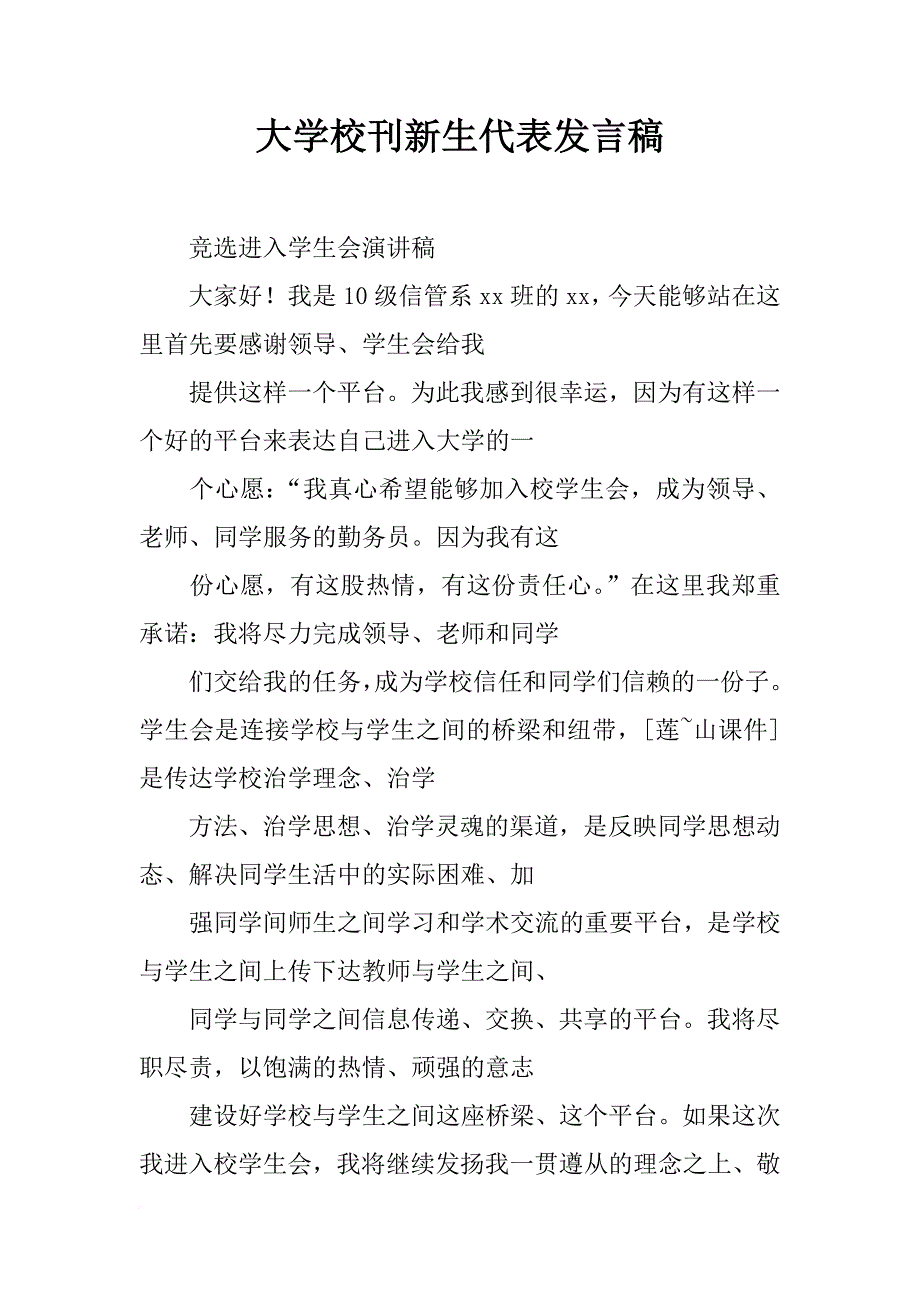 大学校刊新生代表发言稿
竞选进入学生会演讲稿
大家好！我是10级信管系xx班的xx，今天能够站在这
里首先要感谢领导、学生会给我
提供这样一个平台。为此我感到很幸运，因为有这样一
个好的平台来表达自己进入大学的一
个心愿：“我真心希望能够加入校学生会，成为领导、
老师、同学服务的勤务员。因为我有这
份心愿，有这股热情，有这份责任心。”在这里我郑重
承诺：我将尽力完成领导、老师和同学
们交给我的任务，成为学校信任和同学们信赖的一份子。
学生会是连接学校与学生之间的桥梁和纽带，[莲~山课件]
是传达学校治学理念、治学
方法、治学思想、治学灵魂的渠道，是反映同学思想动
态、解决同学生活中的实际困难、加
强同学间师生之间学习和学术交流的重要平台，是学校
与学生之间上传下达教师与学生之间、
同学与同学之间信息传递、交换、共享的平台。我将尽
职尽责，以饱满的热情、顽强的意志
建设好学校与学生之间这座桥梁、这个平台。如果这次
我进入校学生会，我将继续发扬我一贯遵从的理念之上、敬